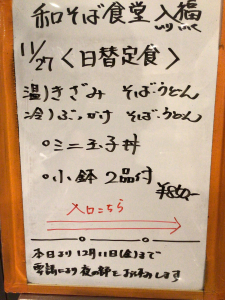 和そば食堂 入福
11/27〈日替定食〉
温)きざみ そば・うどん
冷)ぶっかけ そば・うどん
○ミニ玉子丼
○小鉢2品付
入口こちら
本日より12月11日(金)まで
要請により夜の部をお休みします